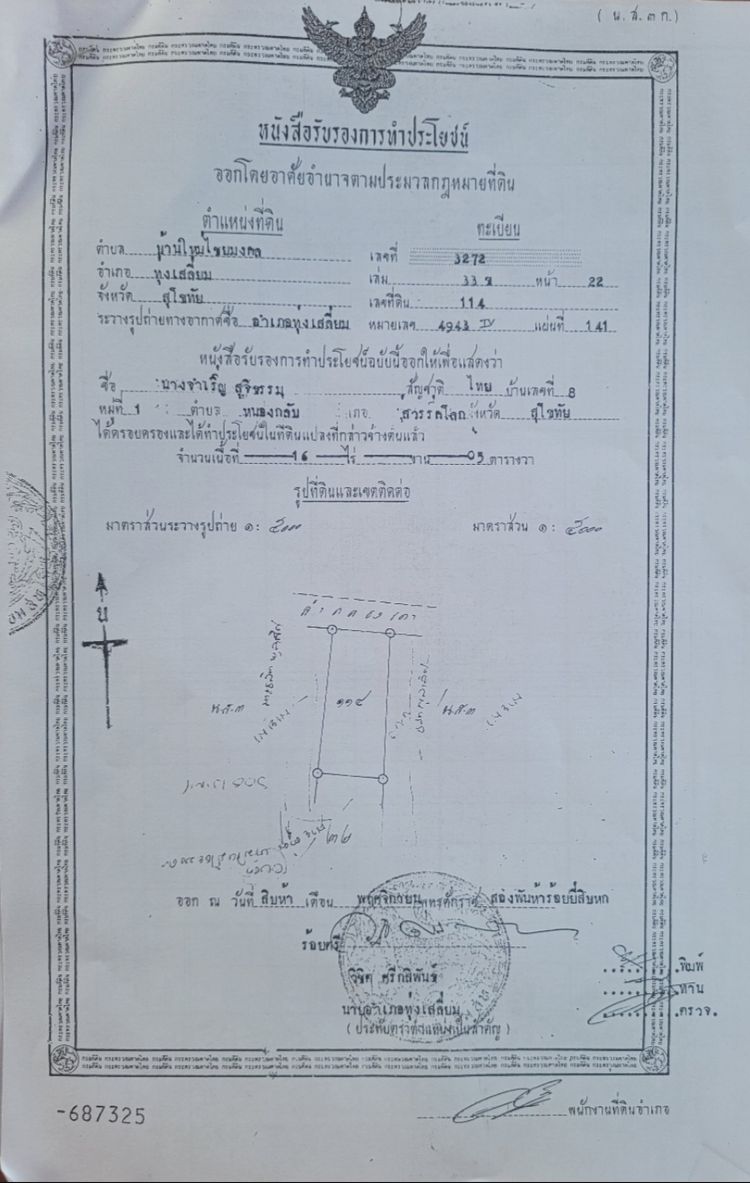 ( น.ส.๓ ก.)
หนังสือรับรองการทำประโยชน์
ออกโดยอาศัยอำนาจตามประมวลกฎหมายที่ดิน
ตำแหน่งที่ดิน
ทะเบียน
ตำบล บ้านใหม่ไชยมงคล
เลขที่ 3272
อำเภอ ทุ่งเสลี่ยม
เล่ม 33 ข หน้า 22
จังหวัด สุโขทัย
เลขที่ดิน 114
ระวางรูปถ่ายทางอากาศชื่อ อำเภอทุ่งเสลี่ยม หมายเลข 4943 IV แผ่นที่ 141
หนังสือรับรองการทำประโยชน์ฉบับนี้ออกให้เพื่อแสดงว่า
ชื่อ นางจำเริญ สัญชาติ ไทย บ้านเลขที่ 8
หมู่ที่ 1 ตำบล หนองกลับ เภอ สวรรคโลก จังหวัด สุโขทัย
ได้ครอบครองและได้ทำประโยชน์ในที่ดินแปลงที่กล่าวข้างต้นแล้ว
จำนวนเนื้อที่ 16 ไร่ งาน 05 ตารางวา
รูปที่ดินและเขตติดต่อ
มาตราส่วนระวางรูปถ่าย ๑ : ๕๐๐๐
มาตราส่วน ๑ : ๕๐๐๐
น
๑๑๔
น.ส.๓
น.ส.๓
ออก ณ วันที่ สิบห้า เดือน พฤศจิกายน พุทธศักราช สองพันห้าร้อยยี่สิบหก
ร้อยตรี
วิชิต ศรีกสิพันธ์
นายอำเภอทุ่งเสลี่ยม
( ประทับตราตำแหน่งเป็นสำคัญ )
พิมพ์
ทาน
ตรวจ.
-687325
พนักงานที่ดินอำเภอ